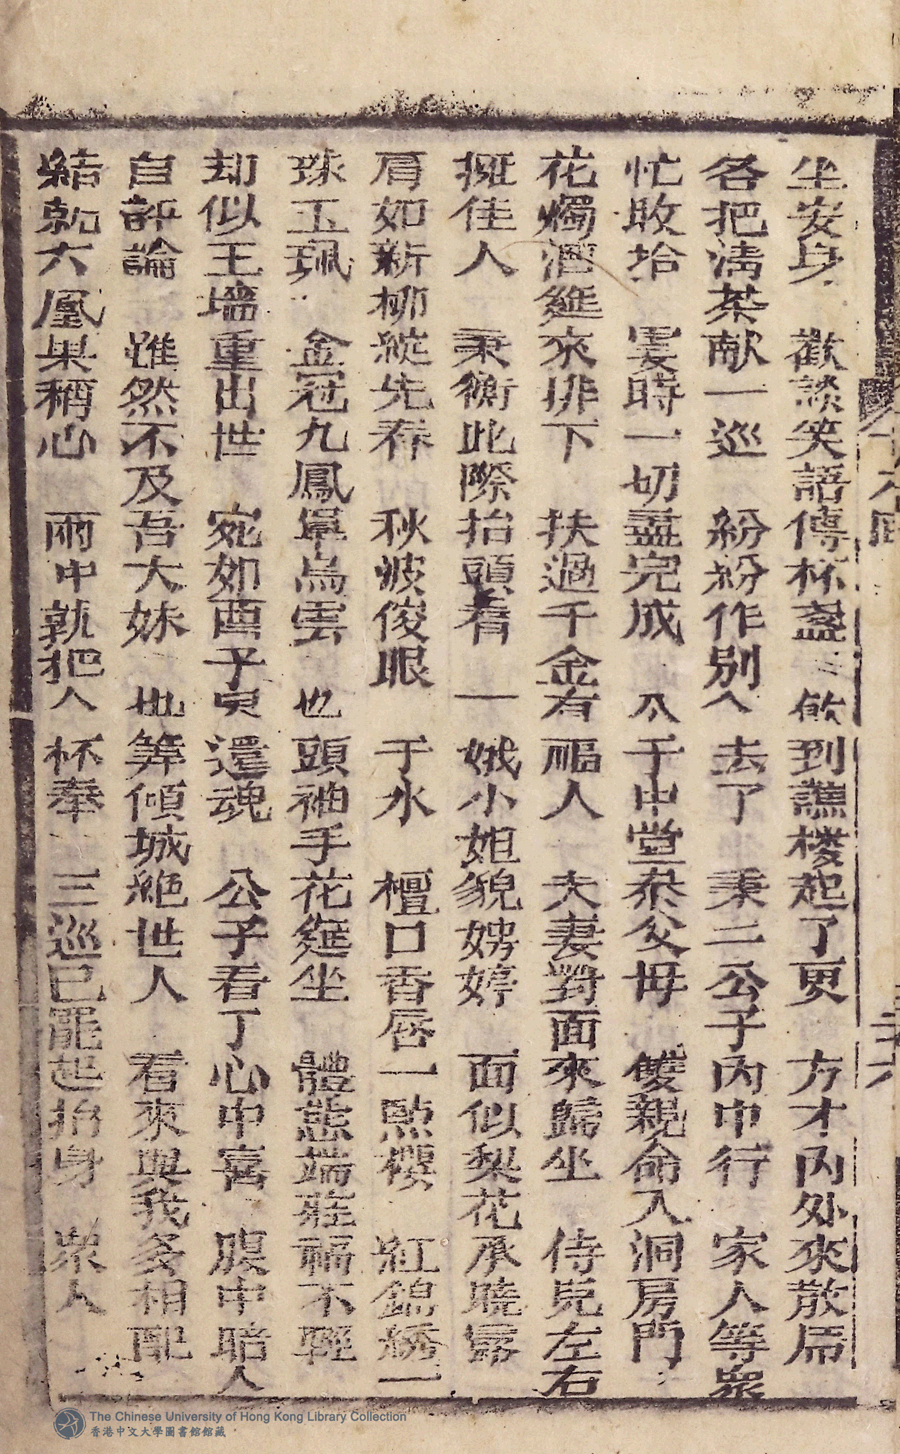 坐安身 歡談笑語傳杯盞 飲到譙楼起了更 方才內外來散席
各把清茶献一巡 紛紛作別人去了 秉二公子內中行 家人等眾
忙收拾 霎時一切盡完成 公子中堂叅父母 雙親命入洞房門
花燭酒筵來排下 扶過千金有福人 夫妻對面來歸坐 侍児左右
擁佳人 秉衡此際抬頭看 一娥小姐貌娉婷 面似梨花承曉露
肩如新柳綻先春 秋波俊眼于水 檀口香唇一點櫻 紅錦綉一
珠玉珮 金冠九鳳單烏雲 也頭袖手花筵坐 體態端莊福不輕
却似王墻重出世 宛如酉子臾還魂 公子看了心中喜 腹中暗人
自評論 雖然不及吾大妹 也筭傾城絕世人 看來與我多相配
結就六凰果稱心 兩中執把人杯奉 三巡已罷起抬身 眾人
二十六
The Chinese University of Hong Kong Library Collection
香港中文大學圖書館館藏